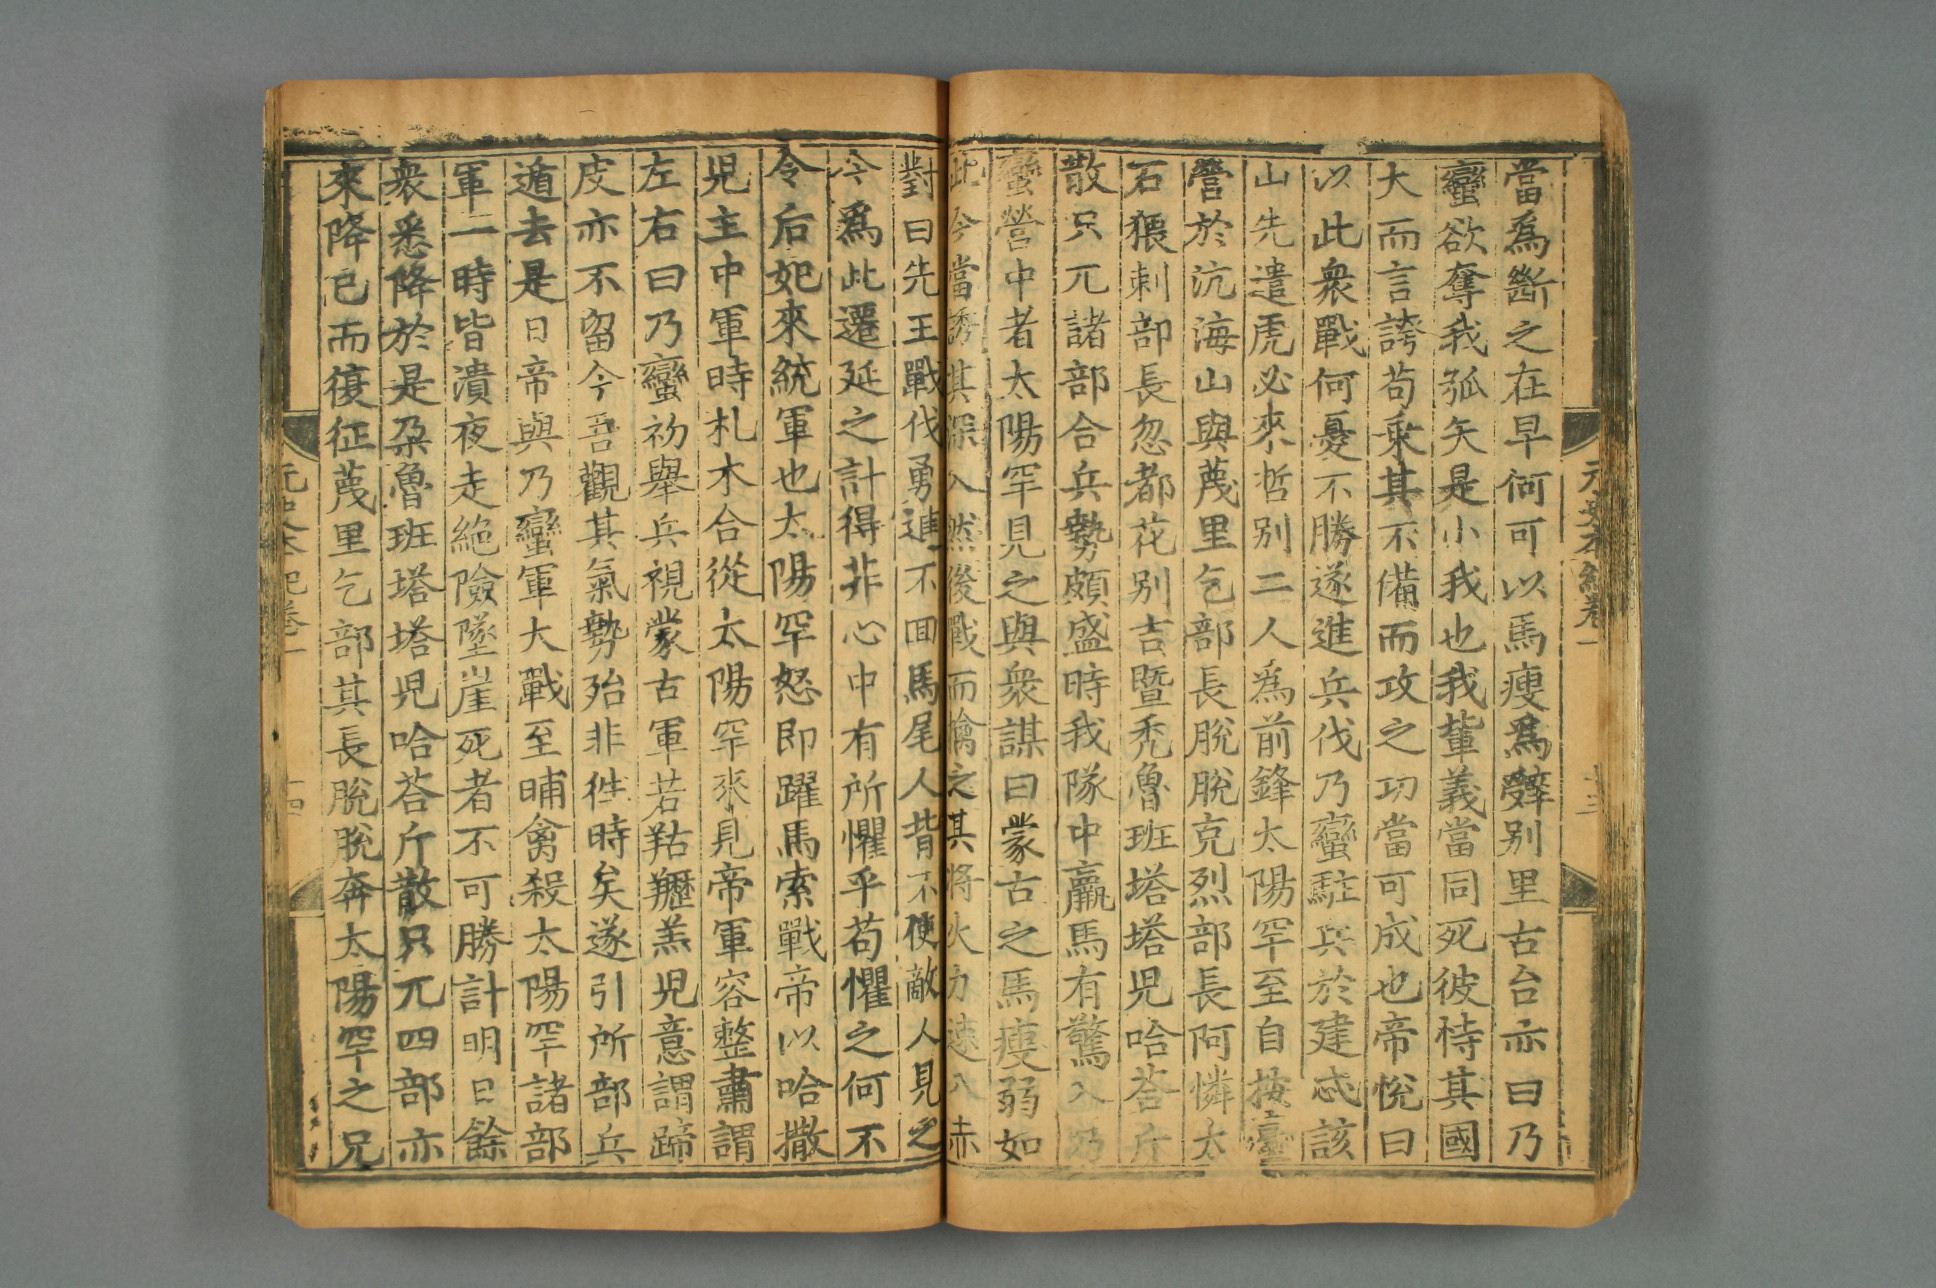 當爲斷之在早何可以馬瘦爲辭別里古台亦曰乃
蠻欲奪我弧矢是小我也我輩義當同死彼恃其國
大而言誇苟乘其不備而攻之功當可成也帝悅曰
以此衆戰何憂不勝遂進兵伐乃蠻駐兵於建忒該
山先遣虎必來哲別二人爲前鋒太陽罕至自按臺
營於沆海山與蔑里乞部長脫脫克烈部長阿憐太
石猥剌部長忽都花別吉暨禿魯班塔塔兒哈荅斤
散只兀諸部合兵勢頗盛時我隊中羸馬有驚入乃
蠻營中者太陽罕見之與衆謀曰蒙古之馬瘦弱如
此今當誘其深入然後戰而擒之其將火力速八赤
對曰先王戰伐勇進不囬馬尾人背不使敵人見之
今爲此遷延之計得非心中有所懼乎苟懼之何不
令后妃來統軍也太陽罕怒即躍馬索戰帝以哈撒
兒主中軍時札木合從太陽罕來見帝軍容整肅謂
左右曰乃蠻初舉兵視蒙古軍若䍩䍽羔兒意謂蹄
皮亦不留今吾觀其氣勢殆非徃時矣遂引所部兵
遁去是日帝與乃蠻軍大戰至晡禽殺太陽罕諸部
軍一時皆潰夜走絕險墜崖死者不可勝計明日餘
衆悉降於是朶魯班塔塔兒哈荅斤散只兀四部亦
來降已而復征蔑里乞部其長脫脫奔太陽罕之兄
元史本紀卷一
十三
元史本紀卷一
十四